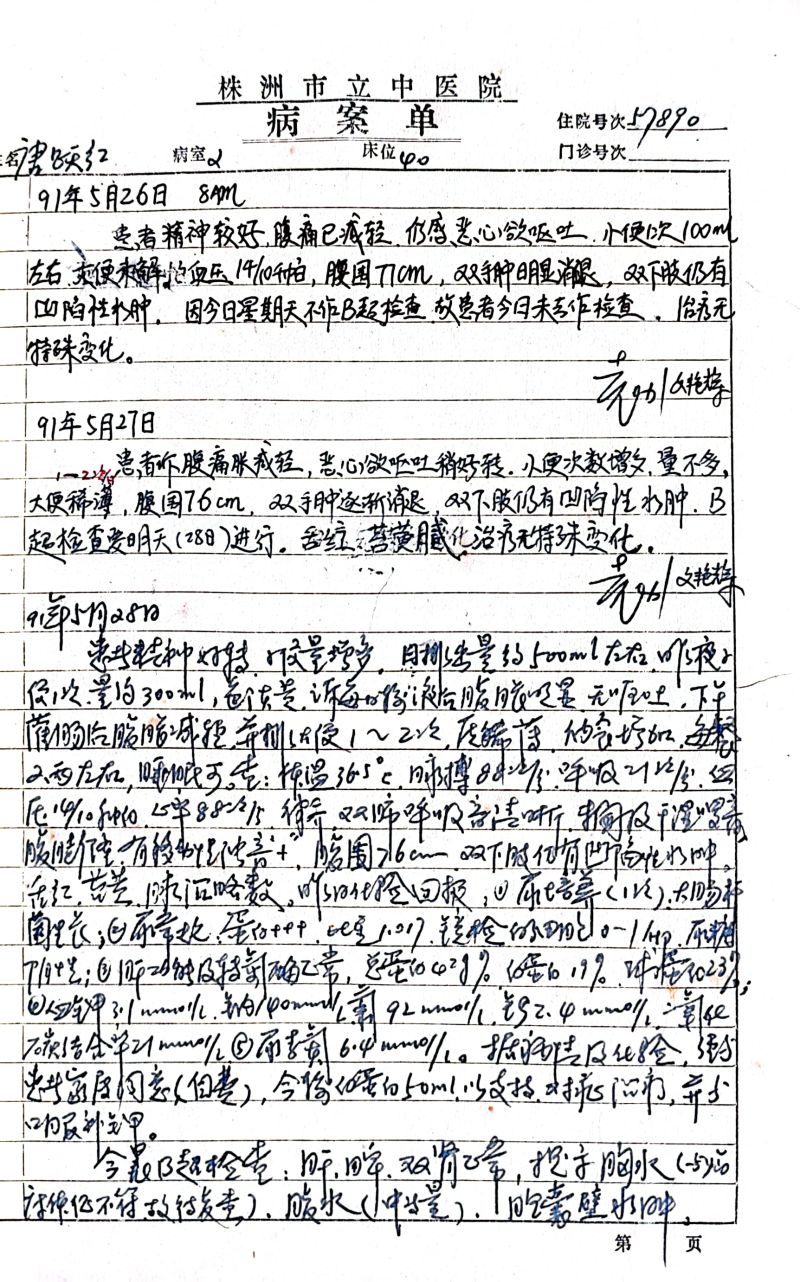 株洲市立中医院
病案单
住院号次57890
姓名 唐跃红 病室2 床位40 门诊号次
91年5月26日 8AM
患者精神较好,腹痛已减轻,仍感恶心欲呕吐,小便1次100ml
左右,大便未解,血压14/10千帕,腹围77cm,双手肿明显消退,双下肢仍有
凹陷性水肿。因今日星期天不作B超检查,故患者今日未去作检查。治疗无
特殊变化。
文艳
91年5月27日
患者昨腹痛胀减轻,恶心欲呕吐稍好转,小便次数增多,量不多,
大便稀薄,1—2次/日,腹围76cm,双手肿逐渐消退,双下肢仍有凹陷性水肿。B
超检查要明天(28日)进行。舌红,苔黄腻,治疗无特殊变化。
文艳
91年5月28日
患者精神好转,尿量增多,日排出量约500ml左右,昨夜小
便1次,量约300ml,色淡黄,诉每次输液后腹胀明显,无呕吐,下午
灌肠后腹胀减轻,并排大便1~2次,质稀薄,纳食增加,每餐
2两左右,睡眠可。查:体温36.5℃,脉搏88次/分,呼吸21次/分,血
压14/10千帕,心率88次/分,律齐,双肺呼吸音清晰,未闻及干湿啰音,
腹膨隆,有移动性浊音"+",腹围76cm,双下肢仍有凹陷性水肿。
舌红,苔黄,脉沉略数。昨日化验回报:①尿培养(1次),大肠杆
菌生长;②尿常规,蛋白+++,比重1.017,镜检 0—1/HP,尿糖
阴性;③肝功能及转氨酶正常,总蛋白42g%,白蛋白19%,球蛋白23%;
④血钾3.1mmol/L,钠140mmol/L,氯92mmol/L,钙2.4mmol/L,二氧化
碳结合率21mmol/L ⑤尿素氮6.4mmol/L。据病情及化验,经与
患者家属同意(自费),今输白蛋白50ml,以支持、对症治疗,并予
口服补钾。
今晨B超检查:肝、脾、双肾正常,提示胸水(
待复查)、腹水(中等量)、胆囊壁水肿
第 2 页